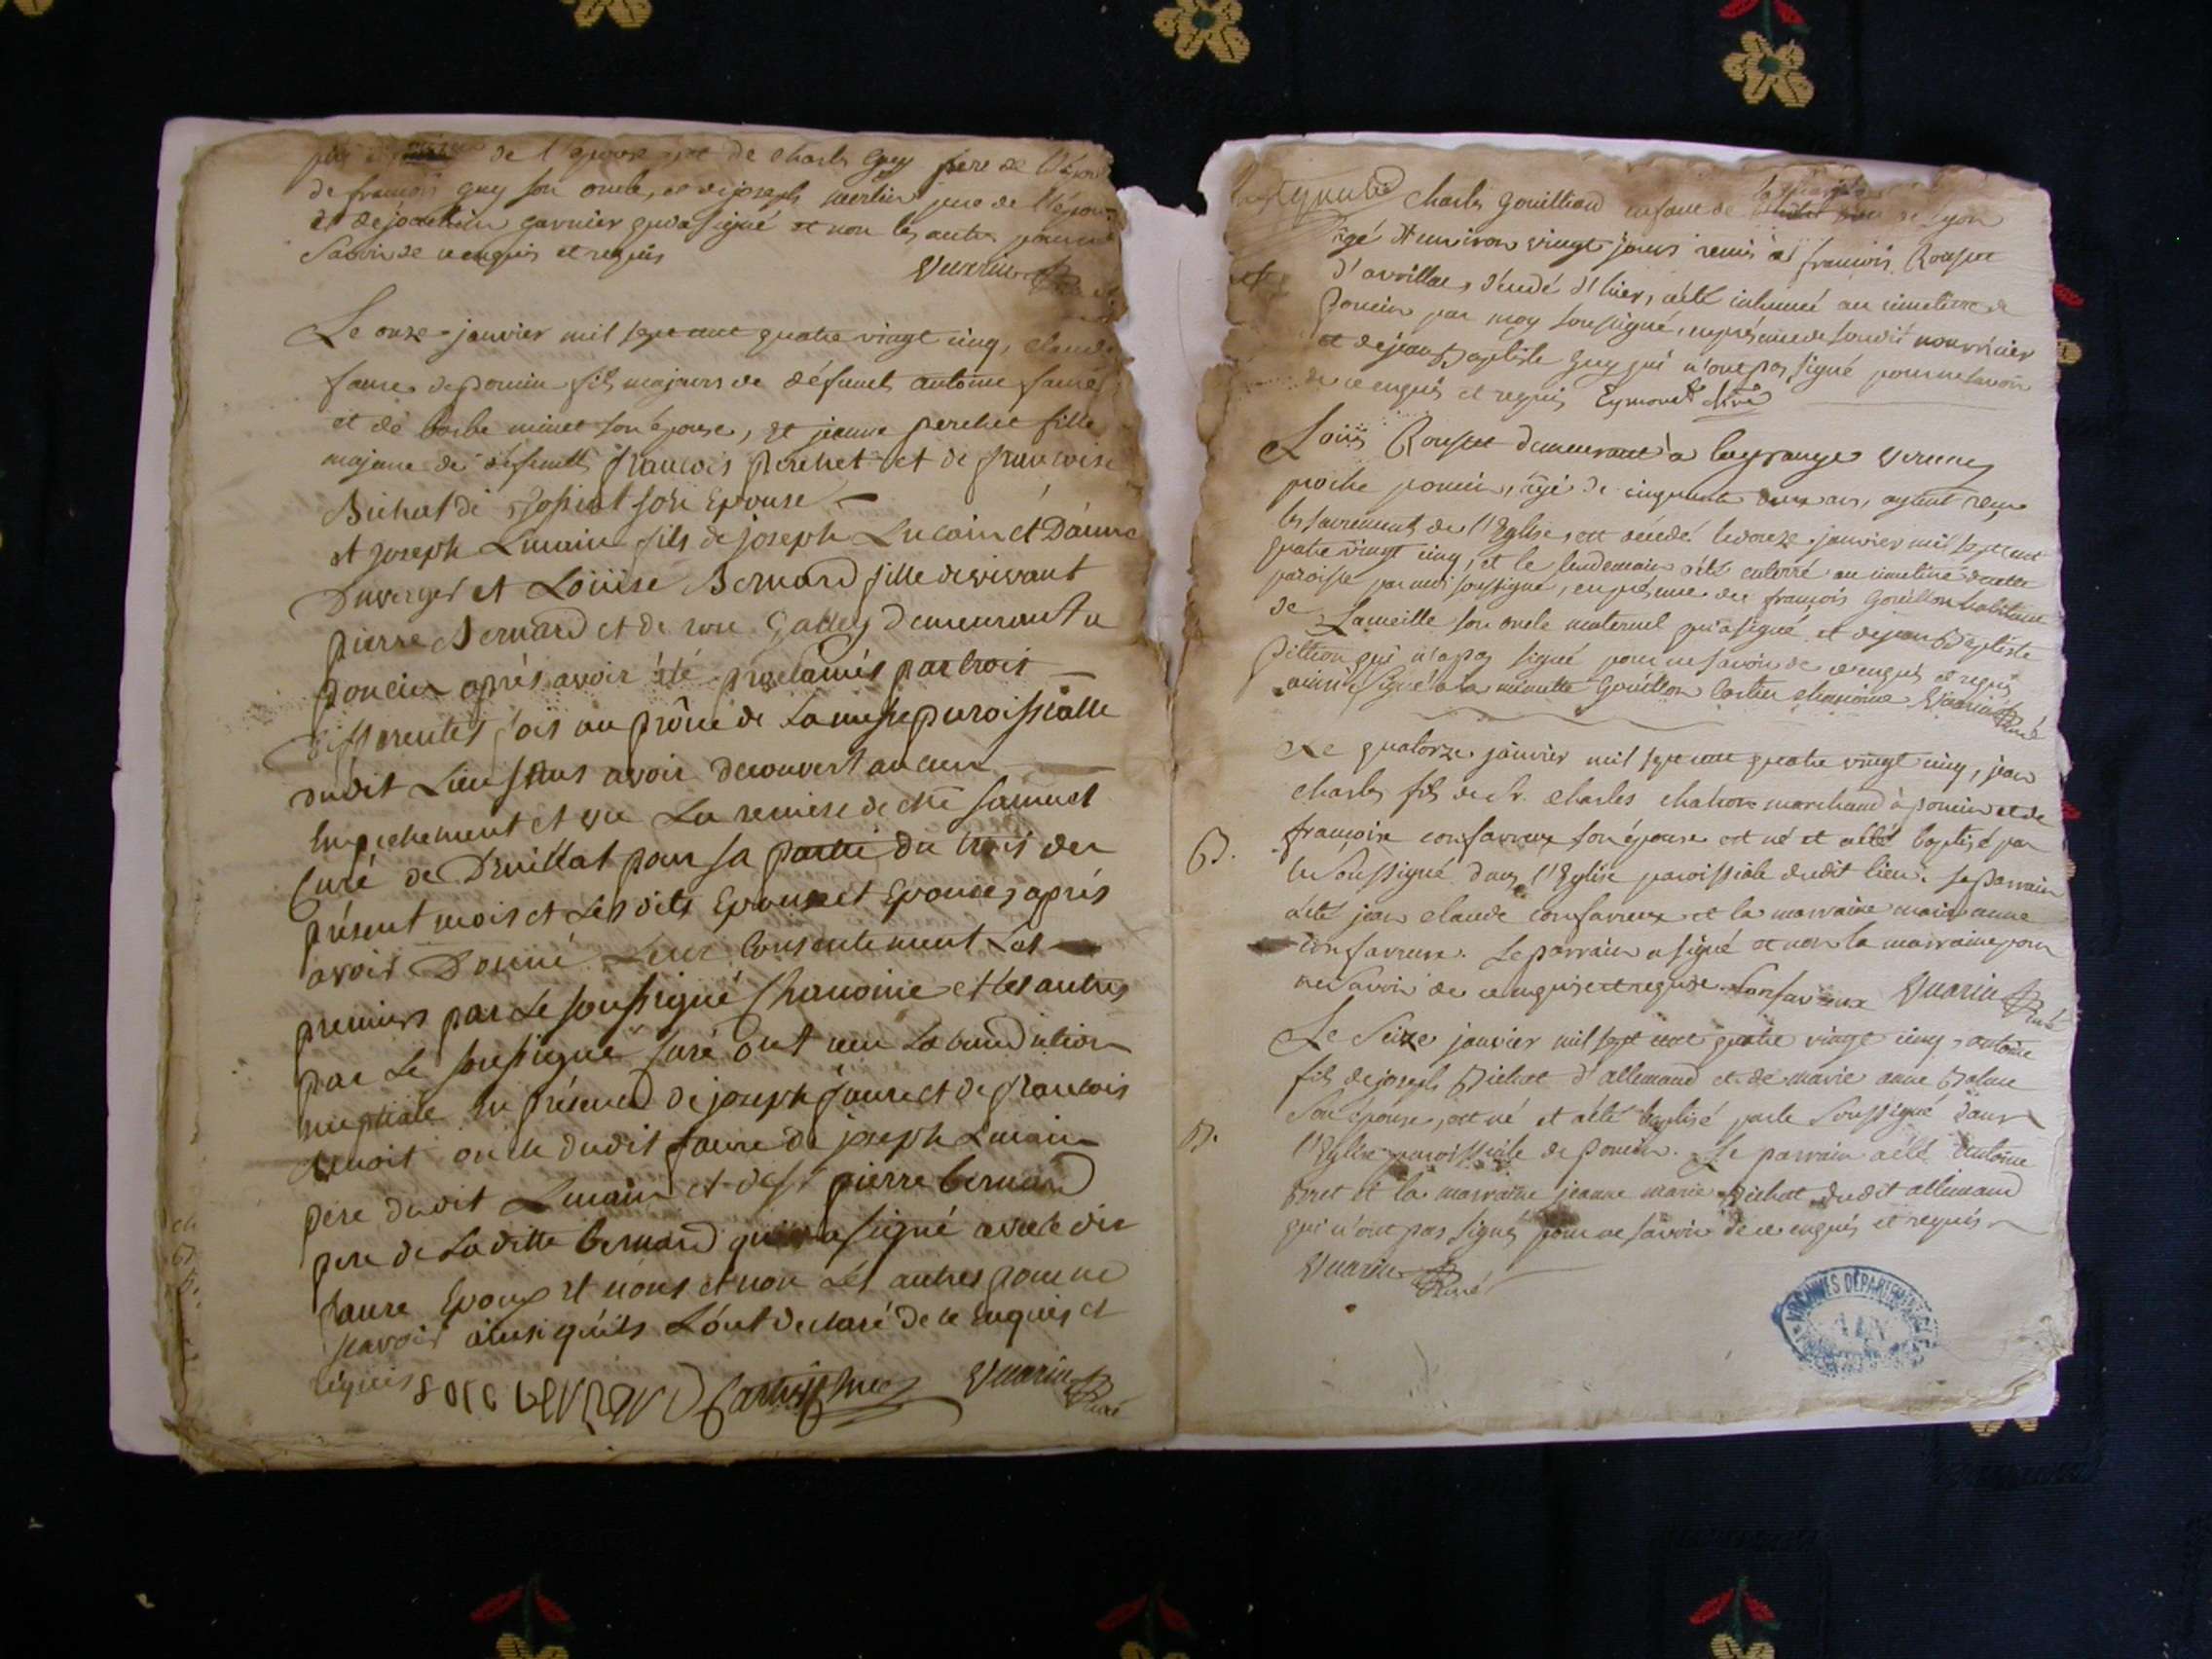 de l'epouse et de Charles Guy père de l'époux
de françois guy son oncle, et de joseph merlin pere de l'épouse
et de joachim garnier qui a signé et non les autres pour ne
savoir de ce enquis et requis
Vuarin Curé
Le onze janvier mil sept cent quatre vingt cinq, claude
faure de poncin fils majeur de défunt antoine faure
et de barbe minet son épouse, et jeanne perchet fille
majeure de défunt françois perchet et de françoise
Bichat de son Epouse
et joseph Lucain fils de joseph Lucain et D'anne
Duverger et Loüise Bernard fille de vivant
pierre Bernard et de Gallet demeurant a
poncin aprés avoir été proclamés par trois
differentes fois au prône de La messe paroissialle
dudit Lieu sans avoir decouvert aucun
Empechement et vu La remise de mre samuel
Curé de Druillat pour sa partie du trois du
présent mois et Les dits Epoux et Epouses aprés
avoir Donné Leur Consentement Les
premiers par Le soussigné Chanoine et les autres
par Le soussigné Curé ont reçu La bénédiction
nuptiale En présence de joseph faure et de françois
benoit oncle dudit faure de joseph Lucain
pere dudit Lucain et de sr pierre bernard
pere de Laditte bernard qui a signé avec le dit
faure Epoux et nous et non Les autres pour ne
scavoir ainsi qu'ils L'ont declaré de ce Enquis et
requis Vuarin Curé
Charles Gouilliand enfant de de Lyon
agé d'environ vingt jours remis à françois Rousset
d'avrillat, décédé d'hier, a été inhumé au cimetière de
Poncin par moy soussigné, en présence de soudit nourricier
et de jean Baptiste Guy qui n'ont pas signé pour ne savoir
de ce enquis et requis Eymonet
Loüis Rousset demeurant à la grange
proche poncin, agé de cinquante deux ans, ayant reçu
les sacrements de l'Eglise, est décédé le douze janvier mil sept cent
quatre vingt cinq, et le lendemain a été enterré au cimetière de cette
paroisse par moi soussigné, en présence de françois Gouillon habitant
de Lameille son oncle maternel qui a signé, et de jean Baptiste
Pittion qui n'a pas signé pour ne savoir de ce enquis et requis
ainsi signé a la minutte Gouillon chanoine Vuarin Curé
Le quatorze janvier mil sept cent quatre vingt cinq, jean
charles fils de Sr. Charles marchand à poncin et de
B. françoise confavreux son épouse est né et a été baptisé par
le Soussigné dans l'Eglise paroissiale dudit lieu. Le parrain
a été jean claude confavreux et la marraine marie anne
confavreux. Le parrain a signé et non la marraine pour
ne savoir de ce enquise et requise. Confavreux Vuarin Curé
Le Seize janvier mil sept cent quatre vingt cinq, antoine
fils de joseph Bichat d'allemand et de marie anne
B. Son épouse, est né et a été baptisé par le Soussigné dans
l'Eglise paroissiale de poncin. Le parrain a été antoine
et la marraine jeanne marie Bichat dudit allemand
qui n'ont pas signé pour ne savoir de ce enquis et requis
Vuarin Curé
ARCHIVES DÉPARTEMENTALES